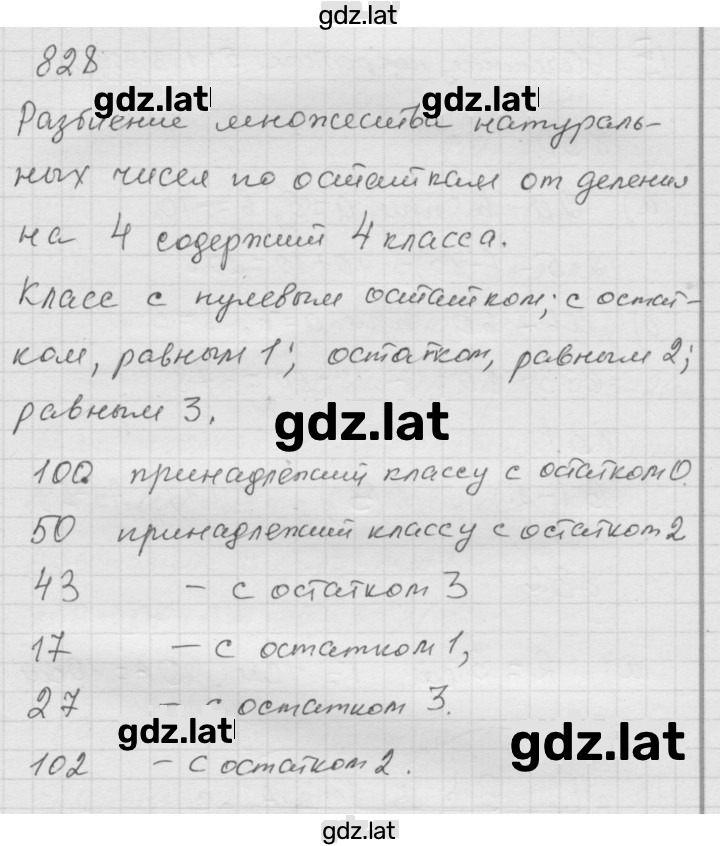 gdz.lat
828
gdz.lat gdz.lat
Разбиение множества натураль-
ных чисел по остаткам от деления
на 4 содержит 4 класса.
Класс с нулевым остатком; с остат-
ком, равным 1; остатком, равным 2;
равным 3.
gdz.lat
100 принадлежит классу с остатком 0.
50 принадлежит классу с остатком 2
43 – с остатком 3
17 – с остатком 1,
27 – с остатком 3.
gdz.lat gdz.lat
102 – с остатком 2.
gdz.lat